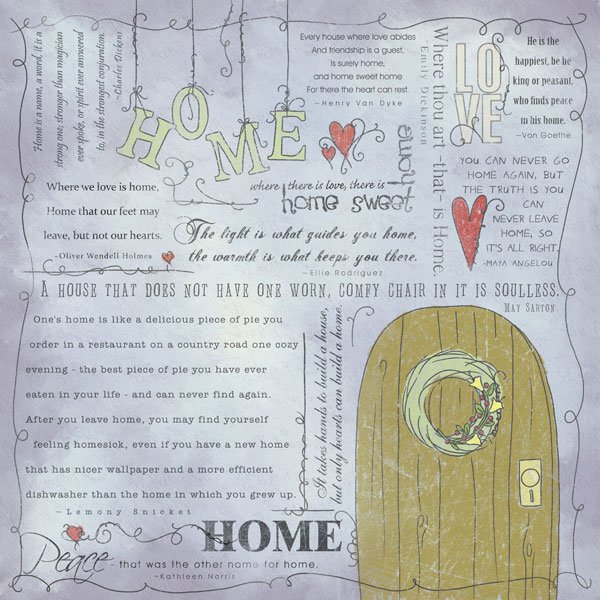 Home is a name, a word, it is a
strong one; stronger than magician
ever spoke, or spirit ever answered
to, in the strongest conjuration.
~Charles Dickens
HOME
Every house where love abides
And friendship is a guest,
Is surely home,
and home sweet home
For there the heart can rest.
~Henry Van Dyke
Where thou art -that- is Home.
~Emily Dickinson
LO
VE
He is the
happiest, be he
king or peasant,
who finds peace
in his home.
~Von Goethe
Where we love is home,
Home that our feet may
leave, but not our hearts.
~Oliver Wendell Holmes
where there is love, there is
home sweet
home
YOU CAN NEVER GO
HOME AGAIN, BUT
THE TRUTH IS YOU
CAN
NEVER LEAVE
HOME, SO
IT'S ALL RIGHT.
~MAYA ANGELOU
The light is what guides you home,
the warmth is what keeps you there.
~Ellie Rodriguez
A HOUSE THAT DOES NOT HAVE ONE WORN, COMFY CHAIR IN IT IS SOULLESS.
MAY SARTON
One's home is like a delicious piece of pie you
order in a restaurant on a country road one cozy
evening - the best piece of pie you have ever
eaten in your life - and can never find again.
After you leave home, you may find yourself
feeling homesick, even if you have a new home
that has nicer wallpaper and a more efficient
dishwasher than the home in which you grew up.
~Lemony Snicket
It takes hands to build a house,
but only hearts can build a home.
HOME
Peace - that was the other name for home.
~Kathleen Norris